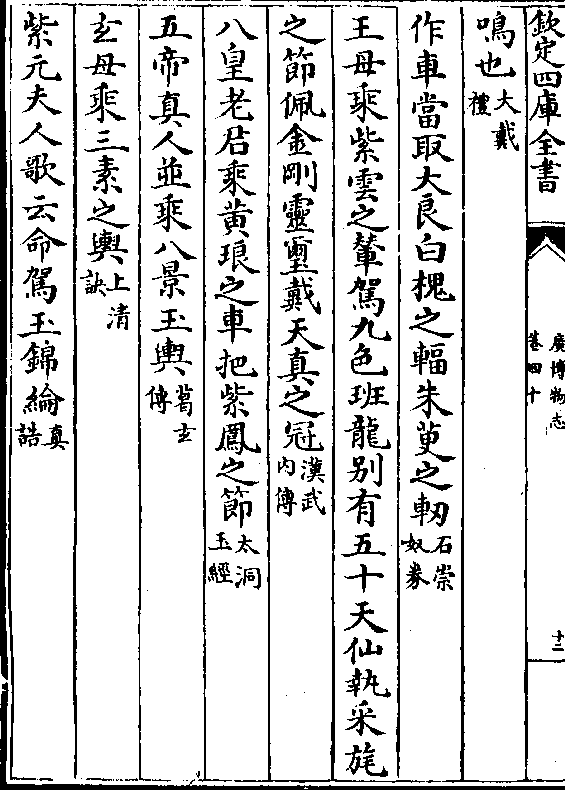 欽定四庫全書
廣博物志
卷四十
十二
鳴也大戴禮
作車當取大良白槐之輻朱萸之軔石崇奴券
王母乘紫雲之輦駕九色班龍别有五十天仙執采旄
之節佩金剛靈璽戴天真之冠漢武内傳
八皇老君乘黄琅之車把紫鳳之節太洞玉經
五帝真人並乘八景玉輿葛玄傳
玄母乘三素之輿上清訣
紫元夫人歌云命駕玉錦綸真誥